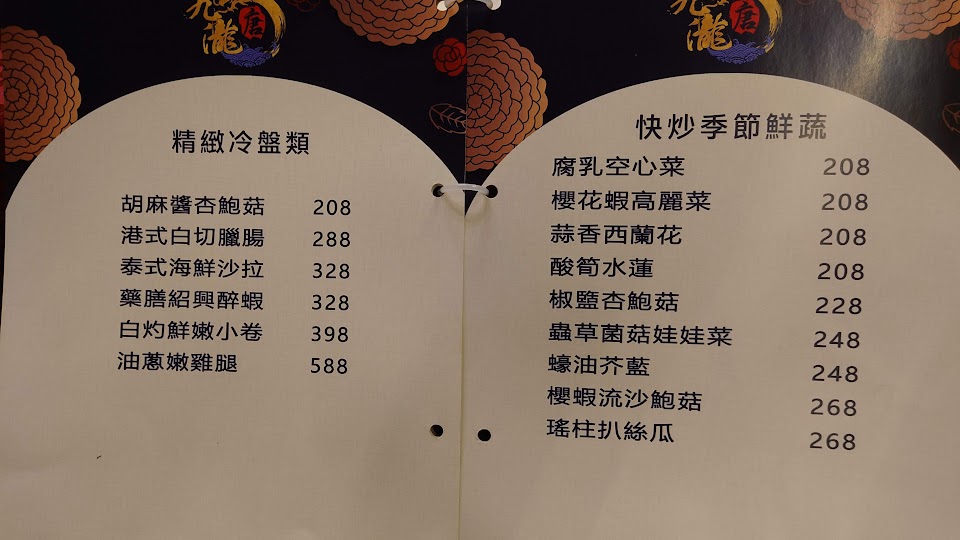 唐
瀧
精緻冷盤類
胡麻醬杏鮑菇 208
港式白切臘腸 288
泰式海鮮沙拉 328
藥膳紹興醉蝦 328
白灼鮮嫩小卷 398
油蔥嫩雞腿 588
唐
瀧
快炒季節鮮蔬
腐乳空心菜 208
櫻花蝦高麗菜 208
蒜香西蘭花 208
酸筍水蓮 208
椒鹽杏鮑菇 228
蟲草菌菇娃娃菜 248
蠔油芥藍 248
櫻蝦流沙鮑菇 268
瑤柱扒絲瓜 268